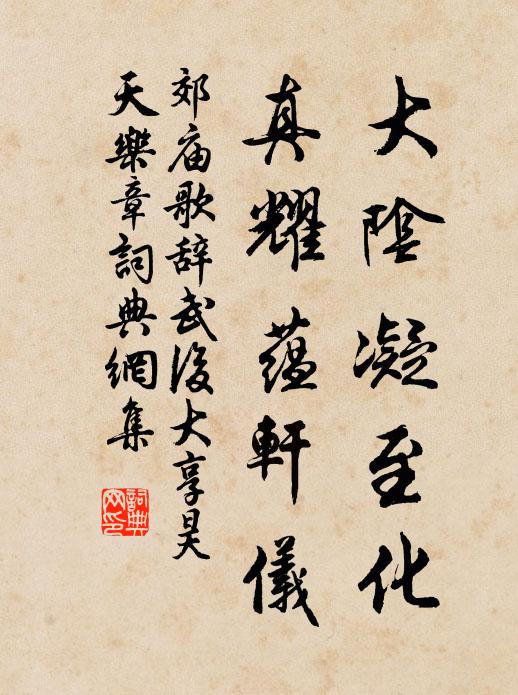 大陰凝至化
真耀蘊軒儀
郊庙歌辞武後大享昊
天樂章詞典網集
詞典
网印